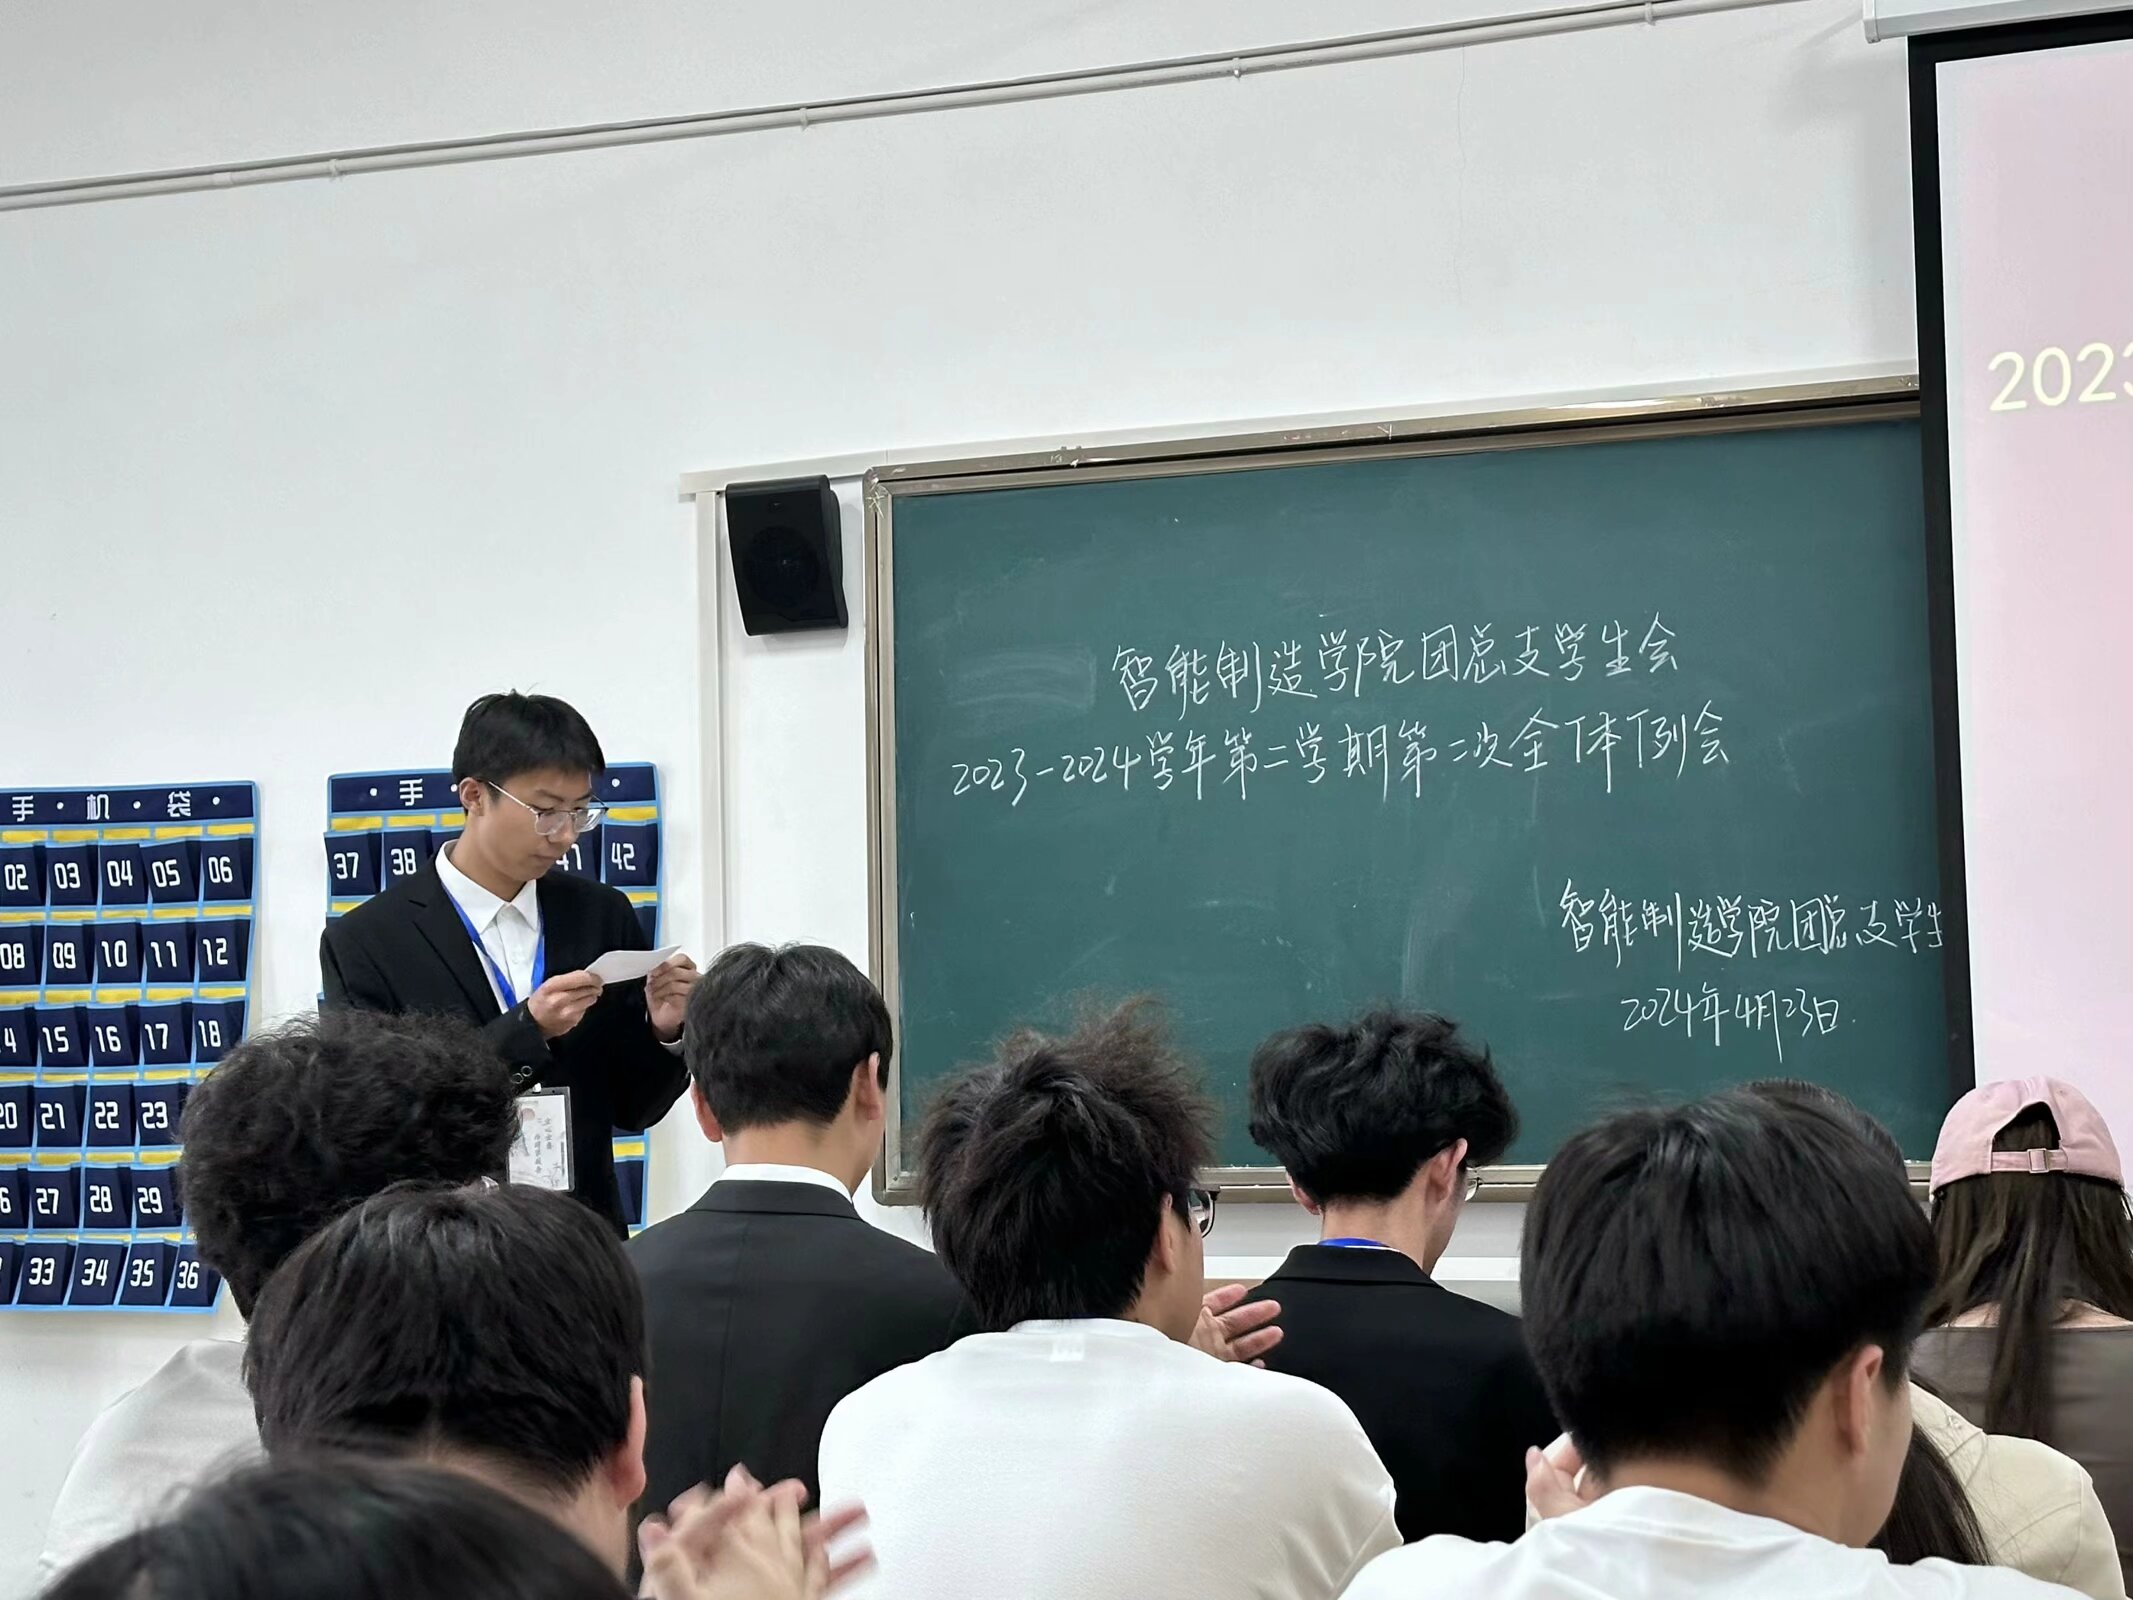 2023
智能制造学院团总支学生会
2023-2024学年第二学期第二次全体例会
智能制造学院团总支学生
2024年4月23日.
手·机·袋·
02 03 04 05 06
08 09 10 11 12
15 16 17 18
20 21 22 23
27 28 29
33 34 35 36
·手·
37 38 41 42